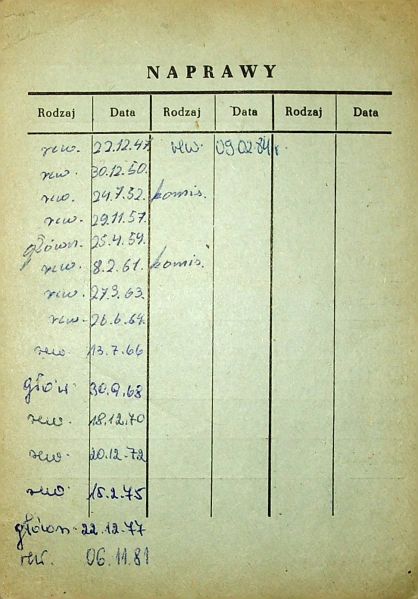 NAPRAWY
Rodzaj Data Rodzaj Data Rodzaj Data
rew. 22.12.47 rew. 09.02.84 r.
rew. 30.12.50.
rew. 24.7.52. komis.
rew. 29.11.57.
główn. 25.4.59.
rew. 8.2.61. komis.
rew. 27.3.63.
rew. 26.6.64.
rew 13.7.66
głów. 30.9.68
rew. 18.12.70
rew. 20.12.72
rew 15.2.75
główn. 22.12.77
rew. 06.11.81